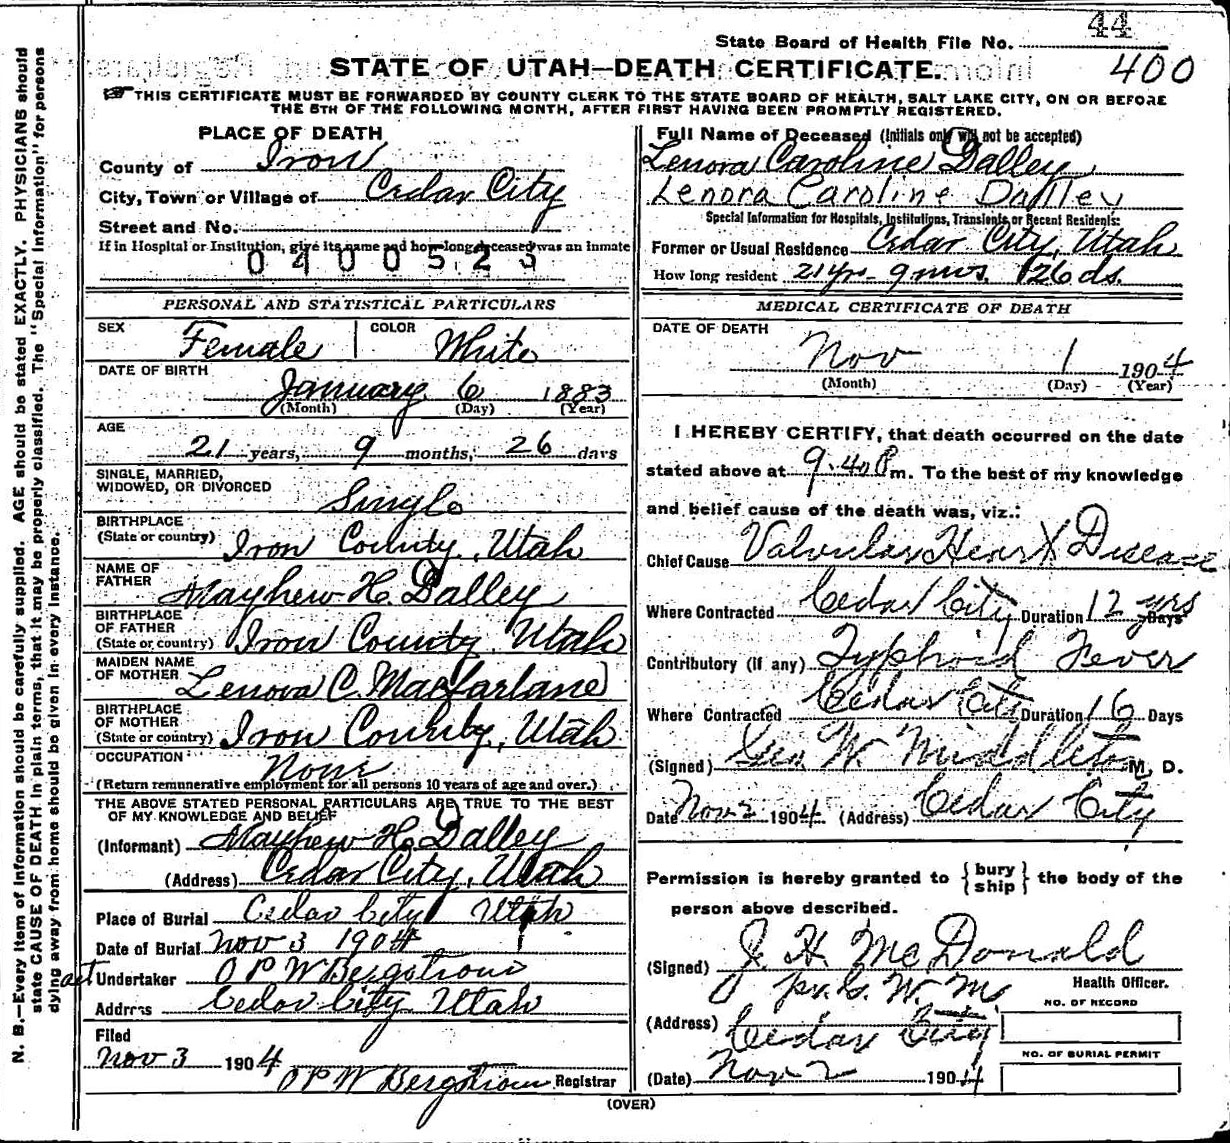 44
State Board of Health File No.
400
STATE OF UTAH—DEATH CERTIFICATE.
THIS CERTIFICATE MUST BE FORWARDED BY COUNTY CLERK TO THE STATE BOARD OF HEALTH, SALT LAKE CITY, ON OR BEFORE
THE 5TH OF THE FOLLOWING MONTH, AFTER FIRST HAVING BEEN PROMPTLY REGISTERED.
N. B.—Every item of information should be carefully supplied. AGE should be stated EXACTLY. PHYSICIANS should
state CAUSE OF DEATH in plain terms, that it may be properly classified. The "Special Information" for persons
dying away from home should be given in every instance.
PLACE OF DEATH
County of Iron
City, Town or Village of Cedar City
Street and No.
If in Hospital or Institution, give its name and how long deceased was an inmate
0400523
PERSONAL AND STATISTICAL PARTICULARS
SEX Female COLOR White
DATE OF BIRTH
January 6 1883
(Month) (Day) (Year)
AGE
21 years, 9 months, 26 days
SINGLE, MARRIED,
WIDOWED, OR DIVORCED Single
BIRTHPLACE
(State or country) Iron County, Utah
NAME OF
FATHER Mayhew H. Dalley
BIRTHPLACE
OF FATHER
(State or country) Iron County, Utah
MAIDEN NAME
OF MOTHER Lenora C. Macfarlane
BIRTHPLACE
OF MOTHER
(State or country) Iron County, Utah
OCCUPATION None
(Return remunerative employment for all persons 10 years of age and over.)
THE ABOVE STATED PERSONAL PARTICULARS ARE TRUE TO THE BEST
OF MY KNOWLEDGE AND BELIEF
(Informant) Mayhew H. Dalley
(Address) Cedar City, Utah
Place of Burial Cedar City Utah
Date of Burial Nov 3 1904
act Undertaker O P W Bergstrom
Address Cedar City Utah
Filed
Nov 3 1904
O P W Bergstrom Registrar
Full Name of Deceased (Initials only will not be accepted)
Lenora Caroline Dalley
Lenora Caroline Dalley
Special Information for Hospitals, Institutions, Transients, or Recent Residents:
Former or Usual Residence Cedar City, Utah
How long resident 21 yrs - 9 mos. 26 ds.
MEDICAL CERTIFICATE OF DEATH
DATE OF DEATH
Nov 1 1904
(Month) (Day) (Year)
I HEREBY CERTIFY, that death occurred on the date
stated above at 9.40 P m. To the best of my knowledge
and belief cause of the death was, viz.:
Chief Cause Valvular Heart Disease
Where Contracted Cedar City Duration 12 yrs Days
Contributory (if any) Typhoid Fever
Where Contracted Cedar City Duration 16 Days
(Signed) Geo. W. Middleton M. D.
Date Nov 2 1904 (Address) Cedar City
Permission is hereby granted to {bury ship} the body of the
person above described.
(Signed) J. H. McDonald
Health Officer.
NO. OF RECORD
(Address) Cedar City
NO. OF BURIAL PERMIT
(Date) Nov 2 1904
(OVER)